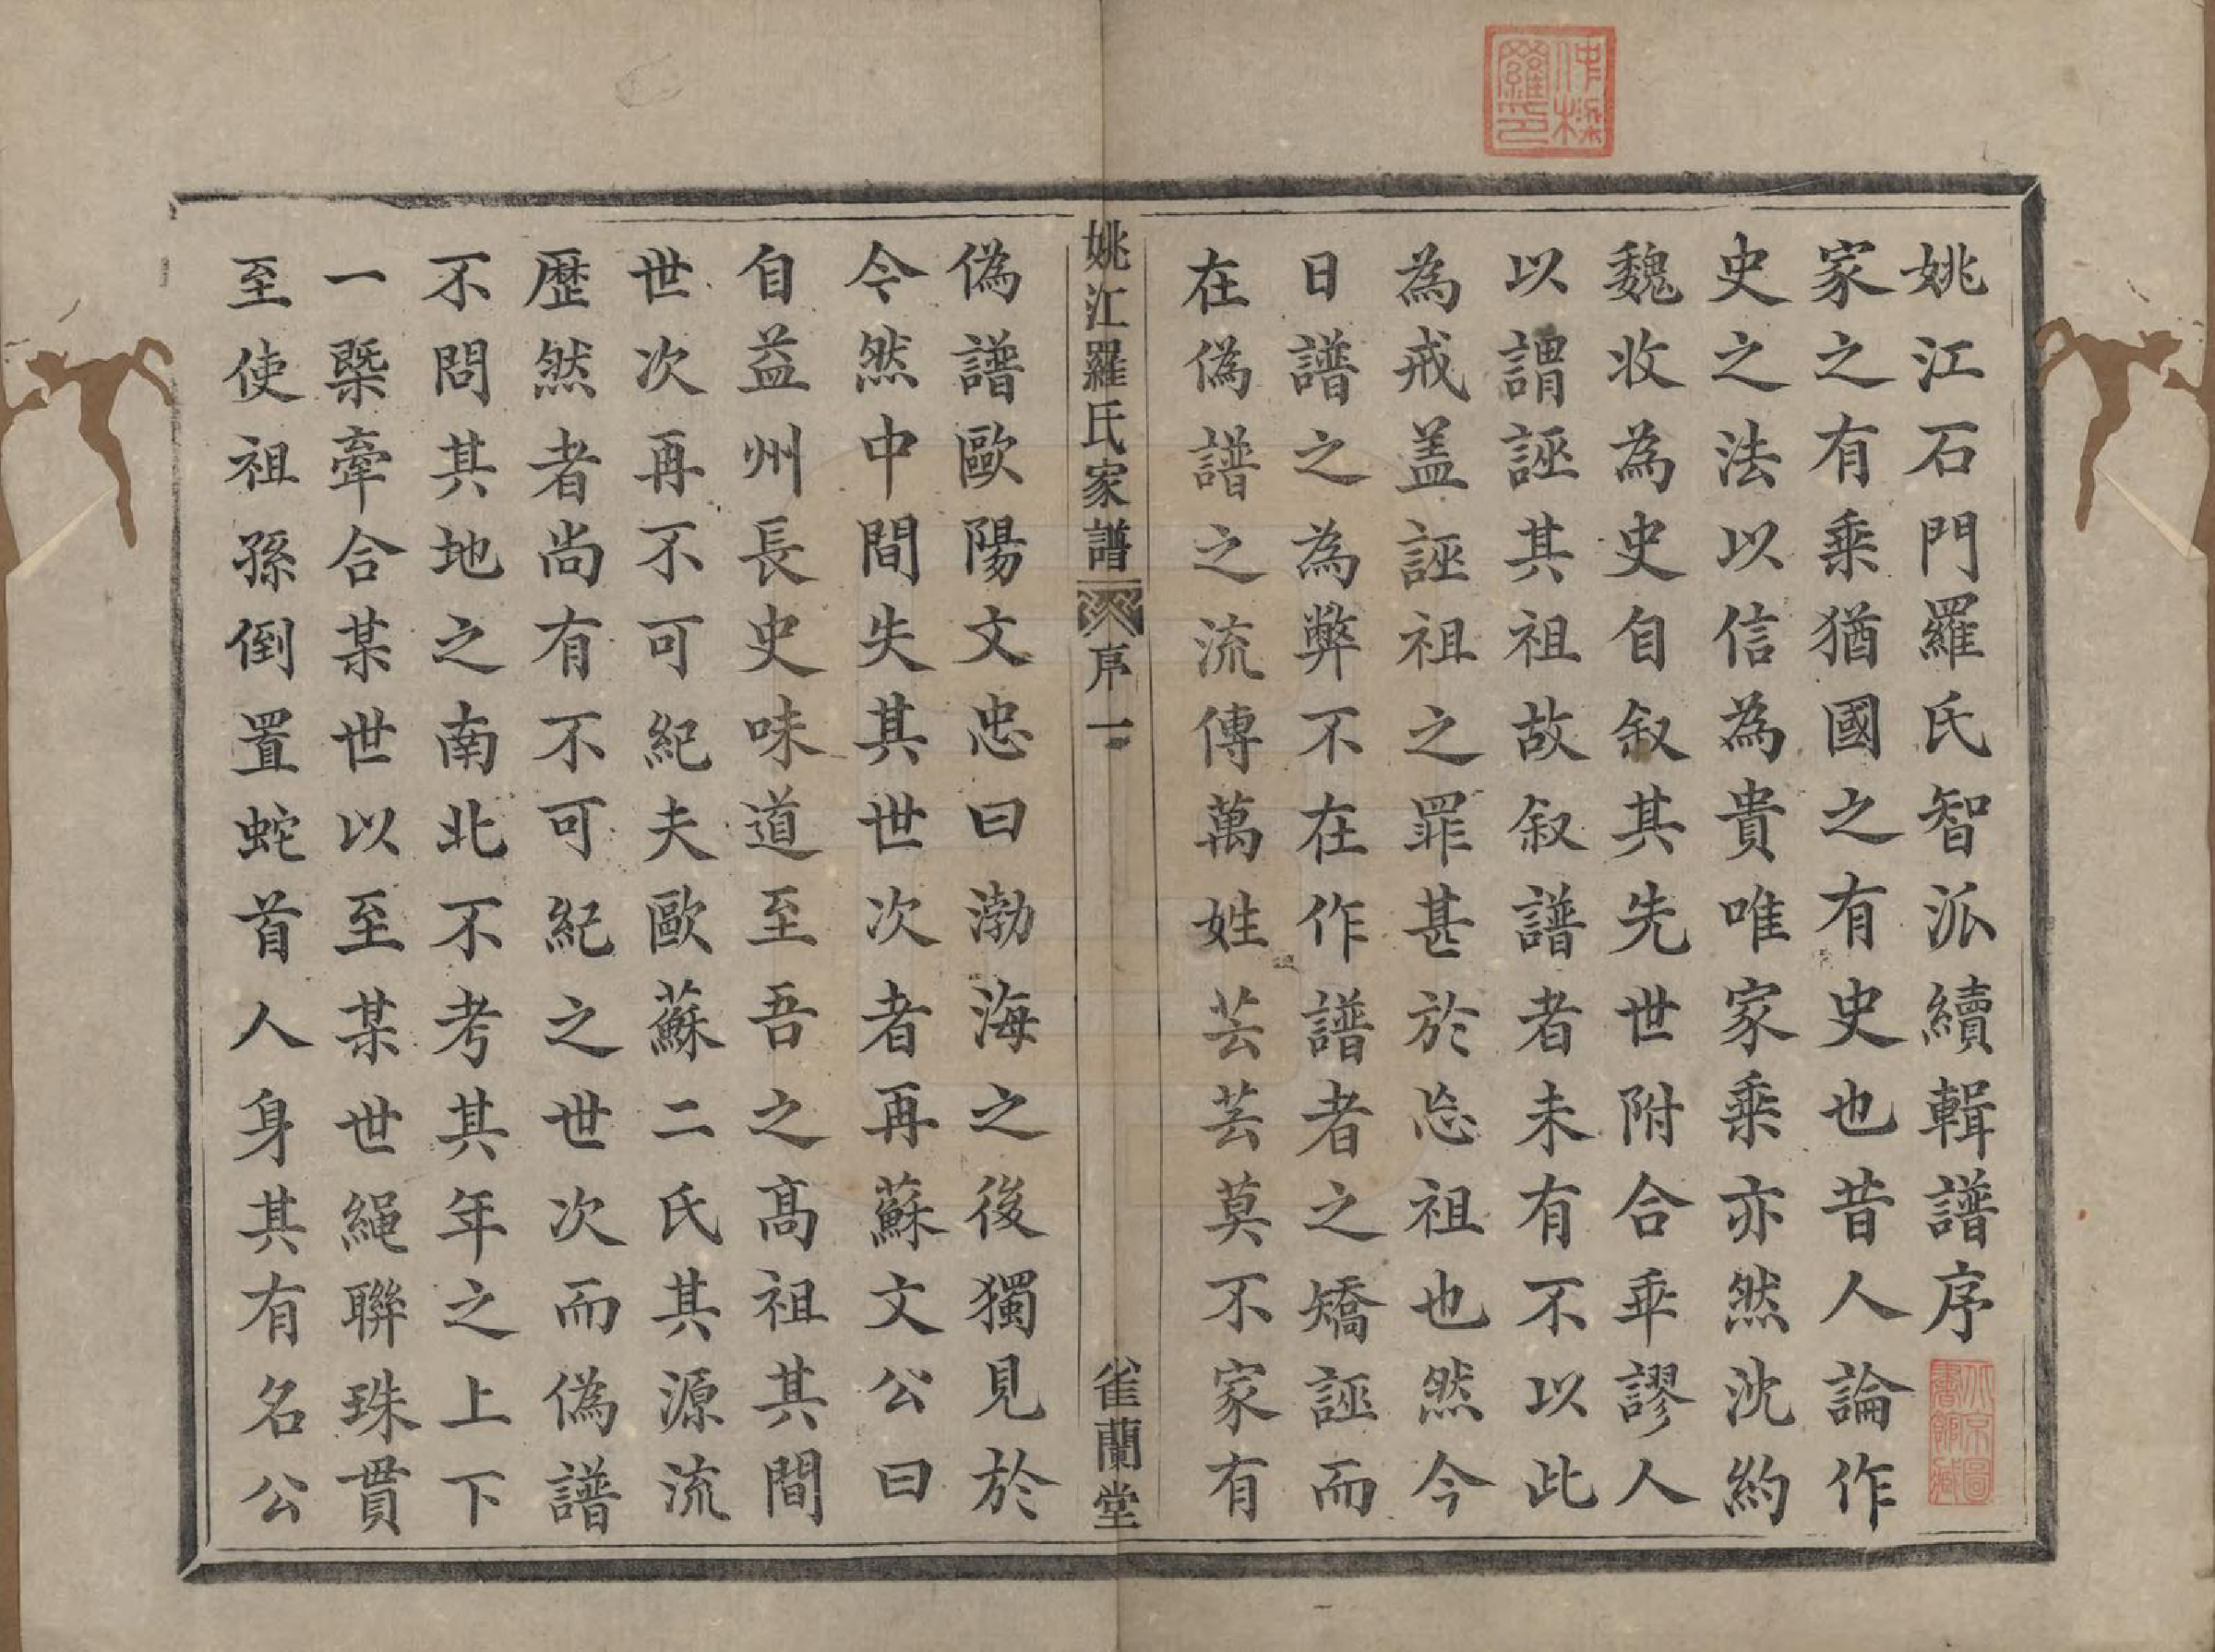 姚江石門羅氏智派續輯譜序
家之有乘猶國之有史也昔人論作
史之法以信為貴唯家乘亦然沈約
魏收為史自叙其先世附合乖謬人
以謂誣其祖故叙譜者未有不以此
為戒盖誣祖之罪甚於忘祖也然今
日譜之為弊不在作譜者之矯誣而
在偽譜之流傳萬姓芸芸莫不家有
姚江羅氏家譜 序 一 雀蘭堂
偽譜歐陽文忠曰渤海之後獨見於
今然中間失其世次者再蘇文公曰
自益州長史味道至吾之高祖其間
世次再不可紀夫歐蘇二氏其源流
歷然者尚有不可紀之世次而偽譜
不問其地之南北不考其年之上下
一槩牽合某世以至某世繩聯珠貫
至使祖孫倒置蛇首人身其有名公